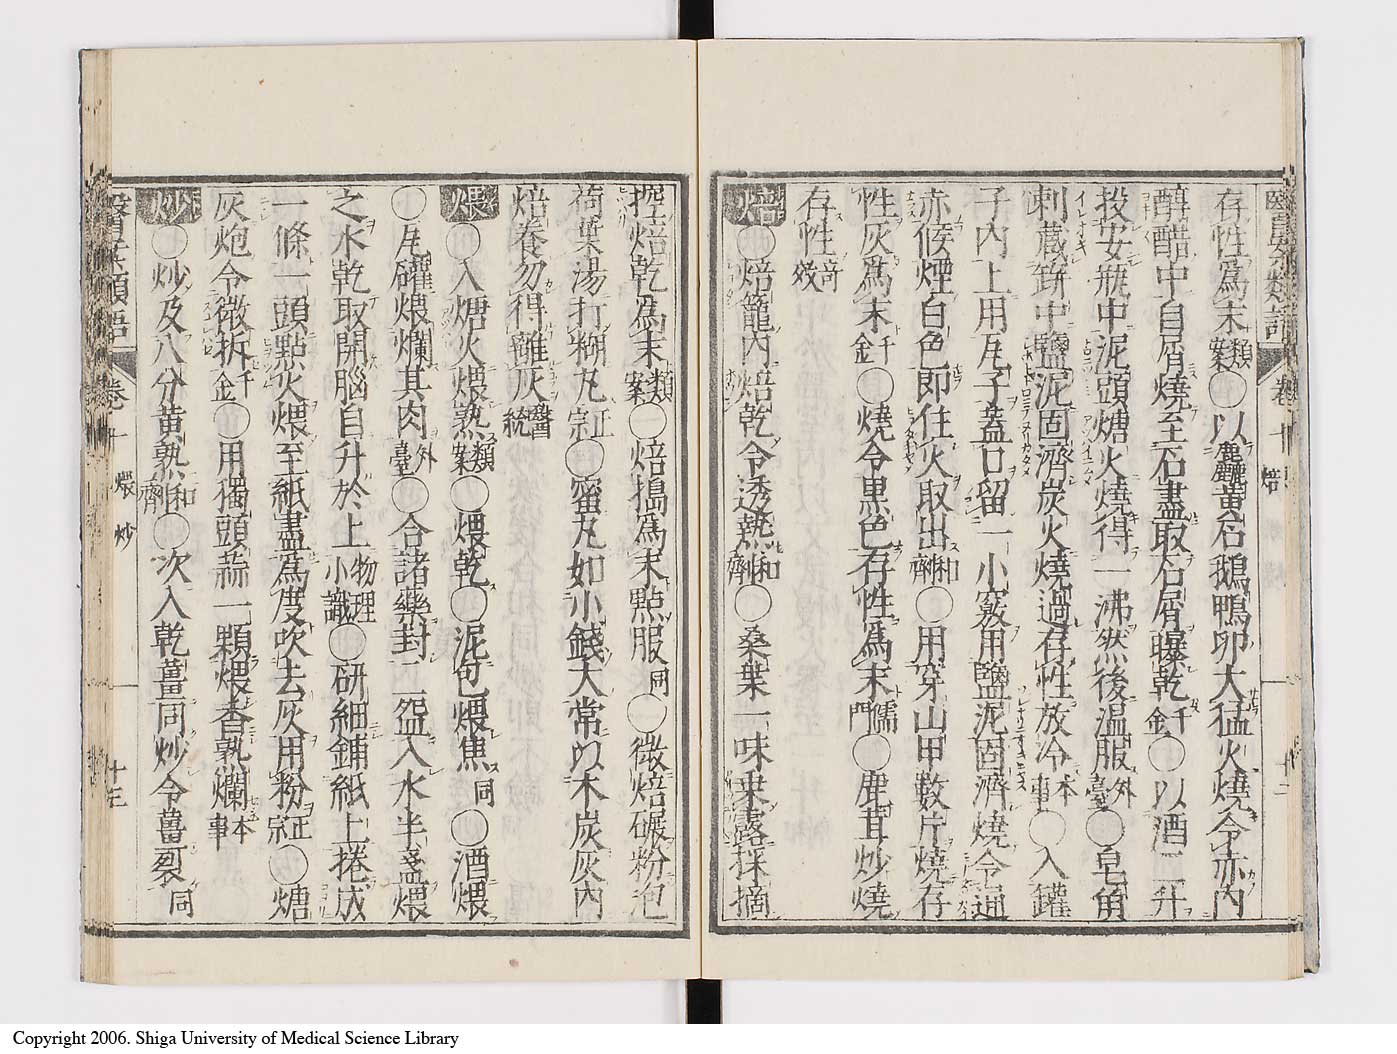 存性爲末類案○以麤黄石鵝鴨卵大猛火燒令赤内
醇醋中自屑燒至石盡取石屑曝乾千金○以酒二升
投安瓶中泥頭煻火燒得一沸然後温服外臺○皂角
刺藏缾中鹽泥固濟炭火燒過存性放冷本事○入罐
子内上用瓦子蓋口留一小竅用鹽泥固濟燒令通
赤候煙白色即住火取出和劑○用穿山甲數片燒存
性灰爲末千金○燒令黒色存性爲末儒門○鹿茸炒燒
存性奇效
焙○焙籠内焙乾令透熱和劑○桑葉一味乗露採摘
醫案類語 卷十 焙 十二
控焙乾爲末類案○焙搗爲末點服同○微焙碾粉泡
荷葉湯打糊丸正宗○蜜丸如小錢大常以木炭灰内
焙養勿得離灰醫統
煨○入煻火煨熟類案○煨乾○泥包煨焦同○酒煨
○瓦罐煨爛其肉外臺○合諸藥封一盌入水半盞煨
之水乾取開腦自升於上物理小識○研細鋪紙上捲成
一條一頭點火煨至紙盡爲度吹去灰用粉正宗○煻
灰炮令微拆千金○用獨頭蒜一顆煨香熟爛本事
炒○炒及八分黄熟和劑○次入乾薑同炒令薑裂同
醫案類語 卷十 煨 炒 十三
Copyright 2006. Shiga University of Medical Science Library